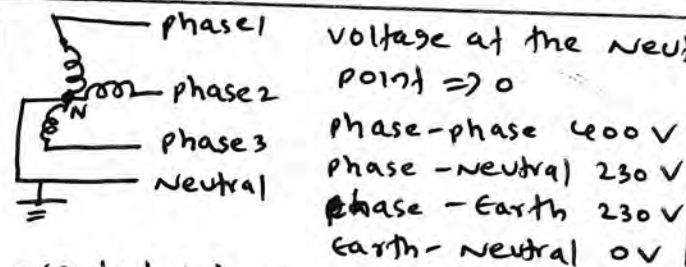 phase1
phase2
N
phase3
Neutral
voltage at the
point => 0
phase-phase 400 V
phase-Neutral 230 V
phase - Earth 230 V
Earth- Neutral 0V